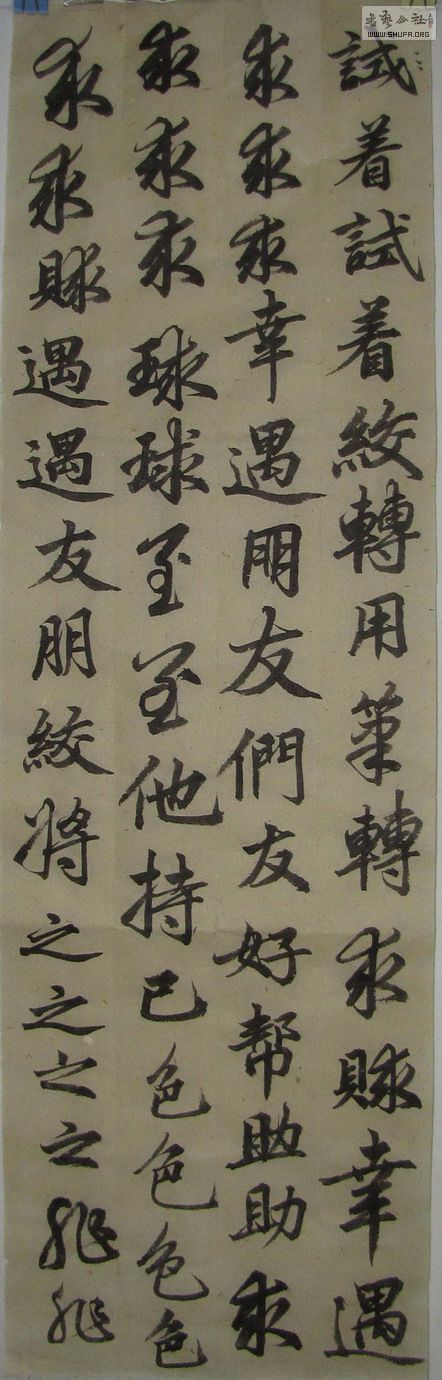 試着試着絞轉用筆轉求賕幸遇
求求求幸遇朋友們友好幫助助求
求求求球球至至他持已色色色色
求求賕遇遇友朋絞將之之之之
WWW.SHUFA.ORG